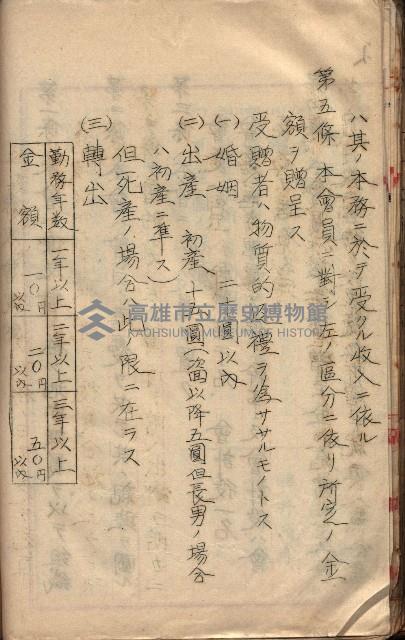 ハ其ノ本務ニ於テ受クル收入ニ依ル
第五條 本會員ニ對シ左ノ區分ニ依リ所定ノ金
額ヲ贈呈ス
受贈者ハ物質的返禮ヲ為ササルモノトス
(一) 婚姻 二十圓以內
(二) 出產 初產 十五圓(次回以降五圓但長男ノ場合
ハ初產ニ準ス)
但死產ノ場合ハ此ノ限ニ在ラス
(三) 轉出
勤務年数 一年以上 二年以上 三年以上
金額 一〇円以內 二〇円以內 五〇円以內
高雄市立歷史博物館
KAOHSIUNG MUSEUM OF HISTORY